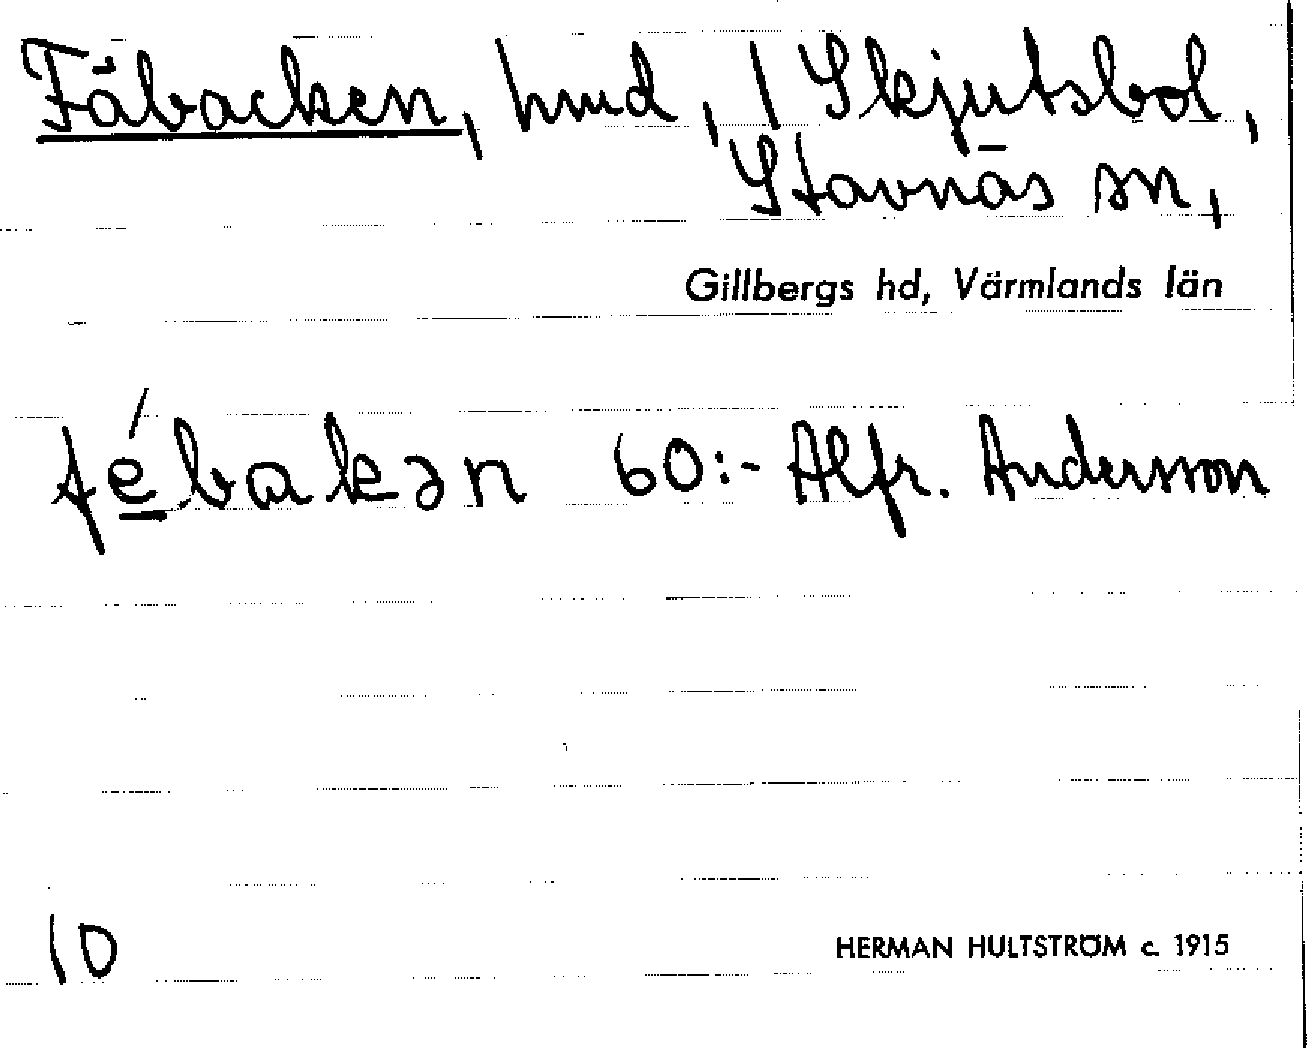 Fäbacken, hmd, 1 Skjutsbol,
Stavnäs sn,
Gillbergs hd, Värmlands län
fé̱bakən 60:- Alfr. Andersson
10
HERMAN HULTSTRÖM c. 1915